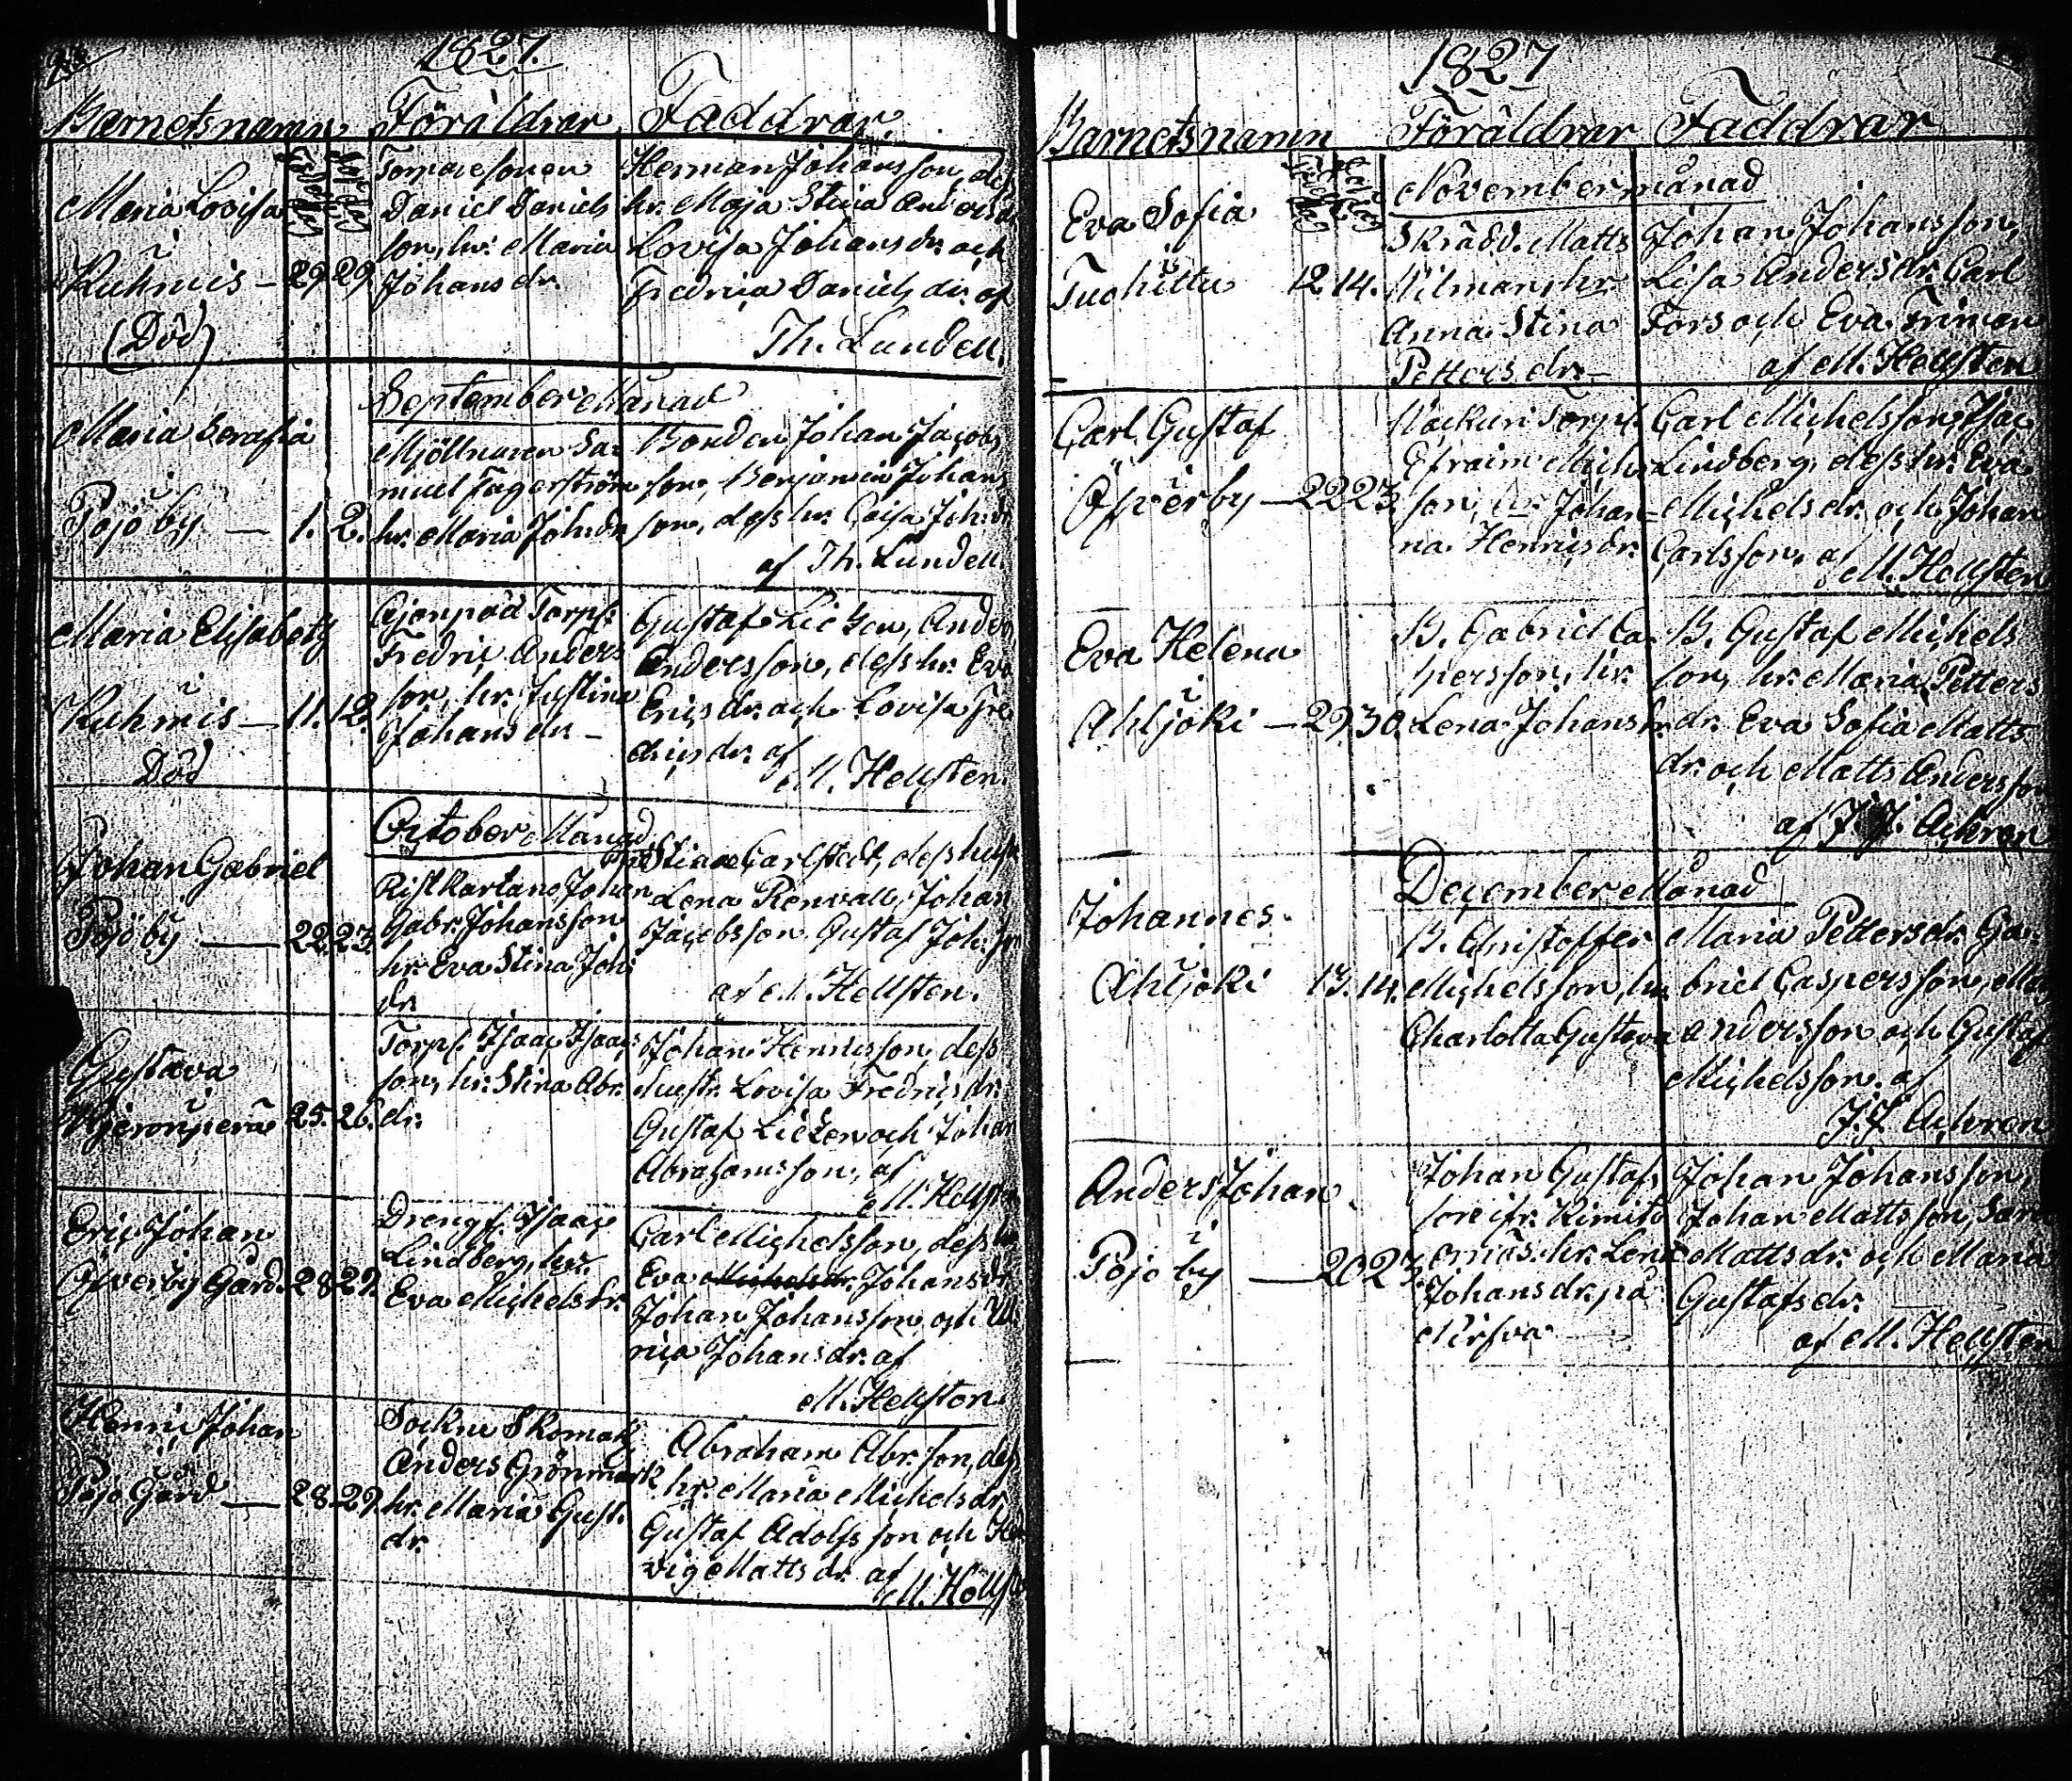 1827.
Barnets namn Föräldrar Faddrar
Maria Lovisa
Kuhmis - 29 29
(Död)
Daniel Daniels
son, hr. Maria
Johansdr.
Herman Johansson, dess
hr. Maja Stina Anders
Lovisa Johansdr. och
Fredrica Danielsdr. af
Th. Lundell.
September Månad
Maria Serafia
Pojo by — 1. 2.
Mjölnaren Sa-
muel Fagerström
hr. Maria Joh:dr
Bonden Johan Jacobs
son, Benjamin Johans
son, dess hr. Caisa Joh:dr
af Th. Lundell.
Maria Elisabeth
Kuhmis — 11. 12.
Död
Torp:
Fredric Anders
son, hr. Justina
Johansdr. -
Gustaf Anders
Andersson, dess hr. Eva
Ericsdr. och Lovisa Fre
dricsdr. af
M. Hellsten.
October Månad
Johan Gabriel
Pojo by — 22. 23.
Johan
Gabr. Johansson
hr. Eva Stina Joh:
dr.
Carlstedt, dess hustr
Lena Renvall, Johan
Jacobsson Gustaf Joh:son
af M. Hellsten.
Gustava
25. 26.
Torp: Isaac Isaacs
son, hr. Stina Abr.
dr.
Johan Henricsson, dess
hustr. Lovisa Fredricsdr.
Gustaf och Johan
Abrahamsson, af
M. Hellsten
Eric Johan
Öfverby Gård. 28 29.
Dreng f. Isaac
Lindberg, hr.
Eva Michelsdr.
Carl Michelsson, dess hr
Eva Michelsdr. Johansdr
Johan Johansson, och Ul
rica Johansdr. af
M. Hellsten.
Henric Johan
Pojo Gård — 28. 29.
Sockne Skomak.
Anders Grönmark
hr. Maria Gust.
dr.
Abraham Abr.son, dess
hr. Maria Michelsdr,
Gustaf Adolfsson och Hed
vig Mattsdr. af
M. Hellsten
1827
Barnets namn Föräldrar Faddrar
November månad
Eva Sofia
12 14.
Skrädd. Matts
hr
Anna Stina
Pettersdr. -
Johan Johansson,
Lisa Andersdr. Carl
Fors och Eva
af M. Hellsten
Carl Gustaf
Öfverby — 22 23.
Torp:
Efraim Michels
son, hr. Johan-
na Henricsdr.
Carl Michelsson, Isac
Lindberg, dess hr. Eva
Michelsdr. och Johan
Carlsson. af
M. Hellsten
Eva Helena
i
Ahljoki — 29 30.
B. Gabriel Ca-
spersson, hr.
Lena Johansdr.
B. Gustaf Michels
son, hr. Maria Petters
dr. Eva Sofia Matts
dr. och Matts Andersson
af J. J. Achren
December Månad
Johannes
i
Ahljoki 13. 14.
B. Christoffer
Michelsson, hr.
Charlotta Gustava
Maria Pettersdr. Ga-
briel Caspersson, Matts
Andersson och Gustaf
Michelsson. af
J. J. Achren
Anders Johan
i
Pojo by — 20 23.
Johan Gustafs
son ifr. Kimito
hr. Lena
Johansdr. på
Johan Johansson,
Johan Mattsson, Sara
Mattsdr. och Maria
Gustafsdr.
af M. Hellsten